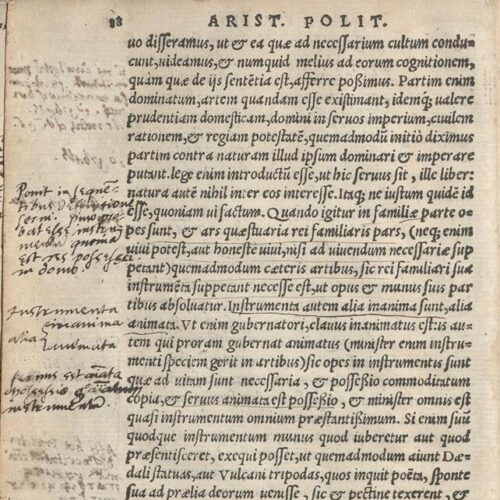 88 ARIST. POLIT.
uo disseramus, ut & ea quæ ad necessarium cultum condu-
cunt, uideamus, & numquid melius ad eorum cognitionem,
quàm quæ de ijs sentẽtia est, afferre possimus. Partim enim
dominatum, artem quandam esse existimant, idemq; ualere
prudentiam domesticam, domini in seruos imperium, ciuilem
rationem, & regiam potestatẽ, quemadmodũ initio diximus
partim contra naturam illud ipsum dominari & imperare
putant. lege enim introductũ esse, ut hic seruus sit, ille liber:
natura autẽ nihil inter eos interesse. Itaq; ne iustum quidẽ id
esse, quoniam ui factum. Quando igitur in familiæ parte o-
pes sunt, & ars quæstuaria rei familiaris pars, (neq; enim
uiui potest, aut honestè uiui, nisi ad uiuendum necessariæ sup
petant) quemadmodum cæteris artibus, sic rei familiari sua
instrumẽta suppetant necesse est, ut opus & munus suis par
tibus absoluatur. Instrumenta autem alia inanima sunt, alia
animata. Vt enim gubernatori, clauus inanimatus est: is au-
tem qui proram gubernat animatus (minister enim instru-
menti speciem gerit in artibus) sic opes in instrumentis sunt
quæ ad uitam sunt necessaria, & possessio commoditatum
copia, & seruus animata est possessio, & minister omnis est
quasi instrumentum omnium præstantissimum. Si enim suũ
quodque instrumentum munus quod iuberetur aut quod
præsentisceret, exequi posset, ut quemadmodum aiunt Dæ-
dali statuas, aut Vulcani tripodas, quos inquit poëta, sponte
sua ad prælia deorum uenisse, sic & pectine texerent, &
Ponit in seque-
instru
est res possessa
in domo.
Instrumenta
alia inanima
animata
seruus est aĩata
possessio
instrumenta